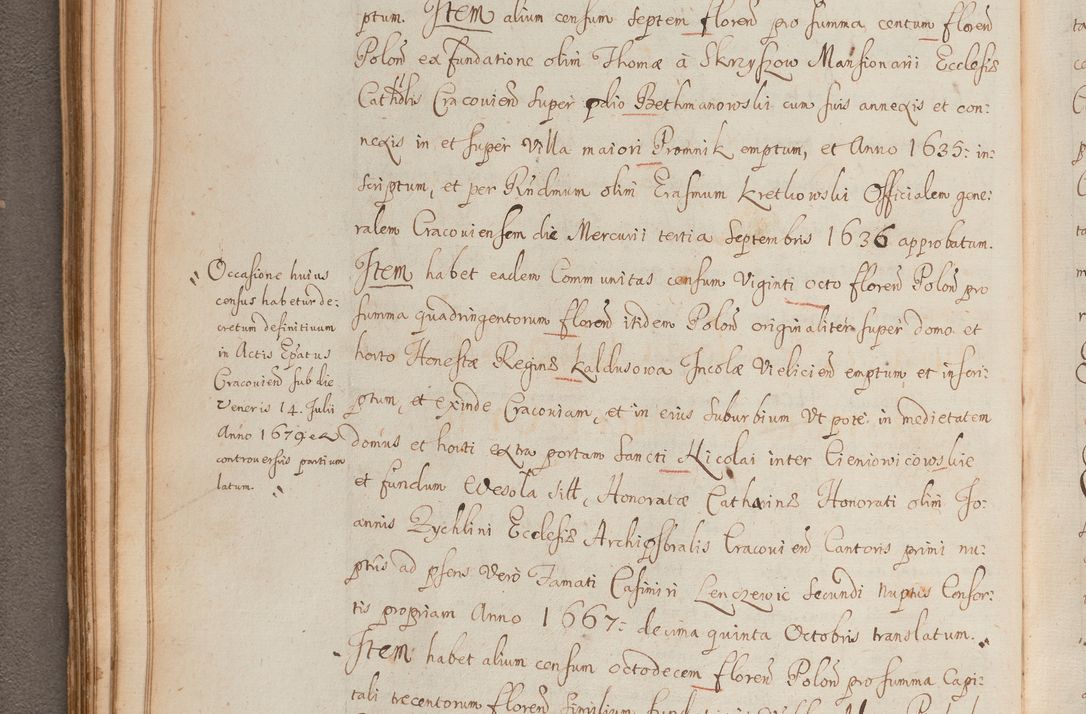 ptum. Item alium censum septem florenˀ pro summa centum florenˀ
Polonˀ ex fundatione olim Thomæ à Skrzyszow Mansionarii Ecclesiæ
Cathdlis Cracovienˀ super pdio Bethmanowski cum suis annexis et con:
nexis in et super Villa maiori Promnik emptum, et Anno 1635: in:
scriptum, et per Rndmum olim Erasmum Kretkowski Officialem gene:
ralem Cracouiensem die Mercurii tertia Septembris 1636 approbatum.
Item habet eadem Communitas censum Viginti octo florenˀ Polonˀ pro
summa quadringentorum florenˀ itidem Polonˀ originaliter super domo et
horto Honestæ Reginæ Kaldusowa Incolæ Vielicienˀ emptum, et inscri:
ptum, et exinde Cracoviam, et in eius suburbium Ut pote in medietatem
domus et horti extra portam Sancti Nicolai inter Cieniowicowskie
et fundum Wesola sitt, Honoratæ Catharinæ Honorati olim Jo:
annis Zychlini Ecclesiæ Archipsbralis Cracovienˀ Cantoris primi nu:
ptiis ad psens Verò Famati Casimiri Lenczewic secundi nuptiis Consor:
tis propriam Anno 1667: decima quinta Octobris translatum.
Item habet alium censum octodecem florenˀ Polonˀ pro summa Capi:
tali trecentorum florenˀ similium
Occasione huius
census habetur de:
cretum definitivum
in Actis Epatus
Cracovienˀ sub die
Veneris 14. Julii
Anno 1679 ex
controversiis partium
latum.